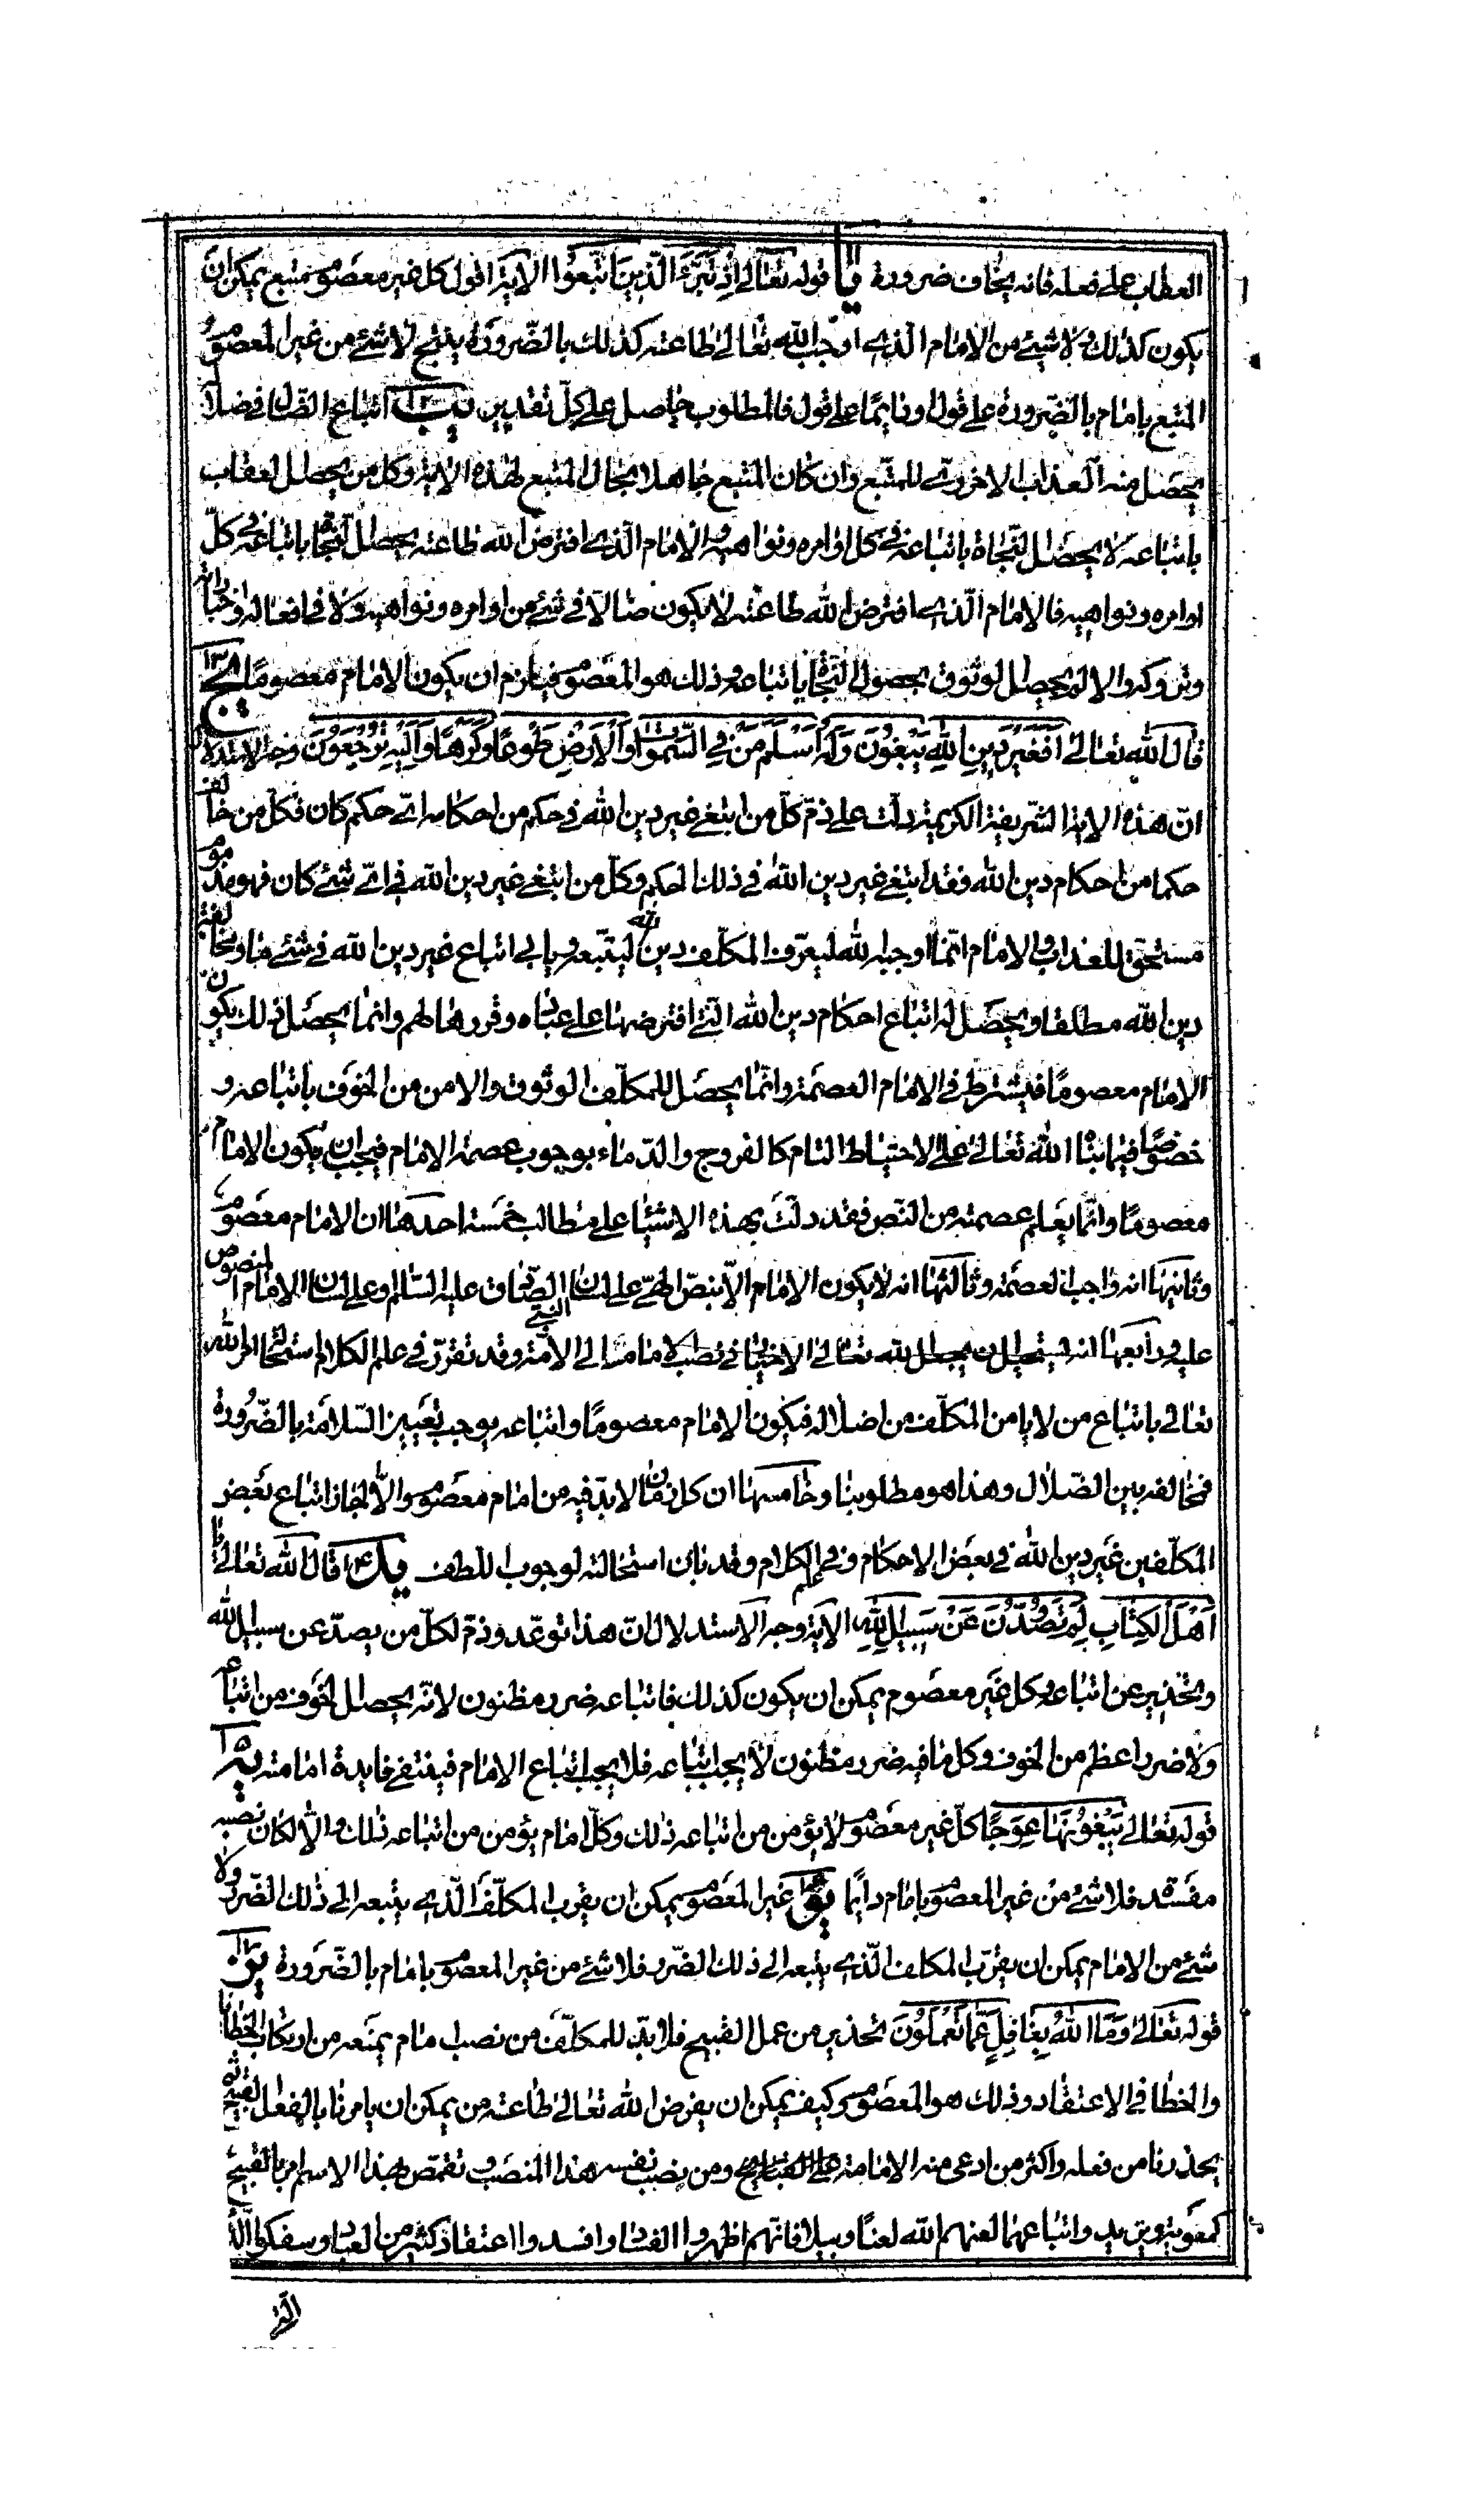 العقاب على فعله فانه يخاف ضرورة يا قوله تعالى اذ تبرء الذين اتبعوا الاية اقول كل غير معصوم متبع يمكن ان
يكون كذلك ولا شيئ من الامام الذى اوجب الله تعالى طاعته كذلك بالضرورة ينتج لا شئ من غير المعصوم
المتبع بامام بالضرورة على قول او دائما على قول فالمطلوب حاصل على كل تقدير يب ١٢ اتباع الضال فى ضلاله
يحصل منه العذاب الاخروى للمتبع وان كان المتبع جاهلا بحال المتبع لهذه الاية وكل من يحصل العقاب
باتباعه لا يحصل النجاة باتباعه فى كل اوامره ونواهيه والامام الذى افترض الله طاعته يحصل النجاة باتباعه فى كل
اوامره ونواهيه فالامام الذى افترض الله طاعته لا يكون ضالا فى شئ من اوامره ونواهيه ولا فى افعاله واخباراته
وتروكه والا لم يحصل الوثوق بحصول النجاة باتباعه وذلك هو المعصوم فيلزم ان يكون الامام معصوما يج ١٣
قال الله تعالى افغير دين الله يبغون وله اسلم من فى السموات والارض طوعا وكرها واليه ترجعون وجه الاستدلال
ان هذه الاية الشريفة الكريمة دلت على ذم كل من ابتغى غير دين الله فى حكم من احكامه اى حكم كان فكل من خالف
حكما من احكام دين الله فقد ابتغى غير دين الله فى ذلك الحكم وكل من ابتغى غير دين الله فى اى شئ كان فهو مذموم
مستحق للعذاب والامام انما اوجبه الله ليعرف المكلف دين الله ليتبعه ويابى اتباع غير دين الله فى شئ ما ومخالفة
دين الله مطلقا ويحصل له اتباع احكام دين الله التى افترضها على عباده وقررها لهم وانما يحصل ذلك بكون
الامام معصوما فيشترط فى الامام العصمة وانما يحصل للمكلف الوثوق والامن من الخوف باتباعه و
خصوصا فيما بناه الله تعالى على الاحتياط التام كالفروج والدماء بوجوب عصمة الامام فيجب ان يكون الامام
معصوما وانما يعلم عصمته من النص فقد دلت بهذه الاشياء على مطالب خمسة احدها ان الامام معصوم
وثانيها انه واجب العصمة وثالثها انه لا يكون الامام الا بنص الهى على لسان النبى الصادق عليه السلم وعلى لسان الامام المنصوص
عليه ورابعها انه يستحيل ان يجعل الله تعالى الاختيار فى نصب الامامة الى الامة وقد تقرر فى علم الكلام استحالة امر الله
تعالى باتباع من لا يامن المكلف من اضلاله فيكون الامام معصوما واتباعه يوجب تعيين السلامة بالضرورة
فمخالفه بين الضلال وهذا هو مطلوبنا وخامسها ان كل زمان لا بد فيه من امام معصوم والا لجاز اتباع بعض
المكلفين غير دين الله فى بعض الاحكام وفى علم الكلام وقد بان استحالته لوجوب اللطف يد ١٤ قال الله تعالى يا
اهل الكتاب لم تصدون عن سبيل الله الاية وجه الاستدلال ان هذا توعد وذم لكل من يصد عن سبيل الله
وتحذير عن اتباعه وكل غير معصوم يمكن ان يكون كذلك فاتباعه ضرر مظنون لانه يحصل الخوف من اتباعه
ولا ضرر اعظم من الخوف وكل ما فيه ضرر مظنون لا يجب اتباعه فلا يجب اتباع الامام فينتفى فايدة امامته يه ١٥
قوله تعالى تبغونها عوجا كل غير معصوم لا يؤمن من اتباعه ذلك وكل امام يؤمن من اتباعه ذلك والا لكان نصبه
مفسدة فلا شئ من غير المعصوم بامام دائما يو غير المعصوم يمكن ان يقرب المكلف الذى يتبعه الى ذلك الضرر ولا
شئ من الامام يمكن ان يقرب المكلف الذى يتبعه الى ذلك الضرر فلا شئ من غير المعصوم بامام بالضرورة يز
قوله تعالى وما الله بغافل عما تعملون تحذير من عمل القبيح فلا بد للمكلف من نصب امام يمنعه من ارتكاب الخطايا
والخطا فى الاعتقاد وذلك هو المعصوم وكيف يمكن ان يفرض الله تعالى طاعته من يمكن ان يامرنا بالفعل القبيح ثم
يحذرنا من فعله واكثر من ادعى منه الامامة على القبايح ومن نصب نفسه هذا المنصب وتقمص بهذا الاسم امر بالقبيح
كمعوية ويزيد واتباعهما لعنهم الله لعنا وبيلا فانهم اظهروا الفساد وافسدوا اعتقاد كثير من العباد وسفكوا